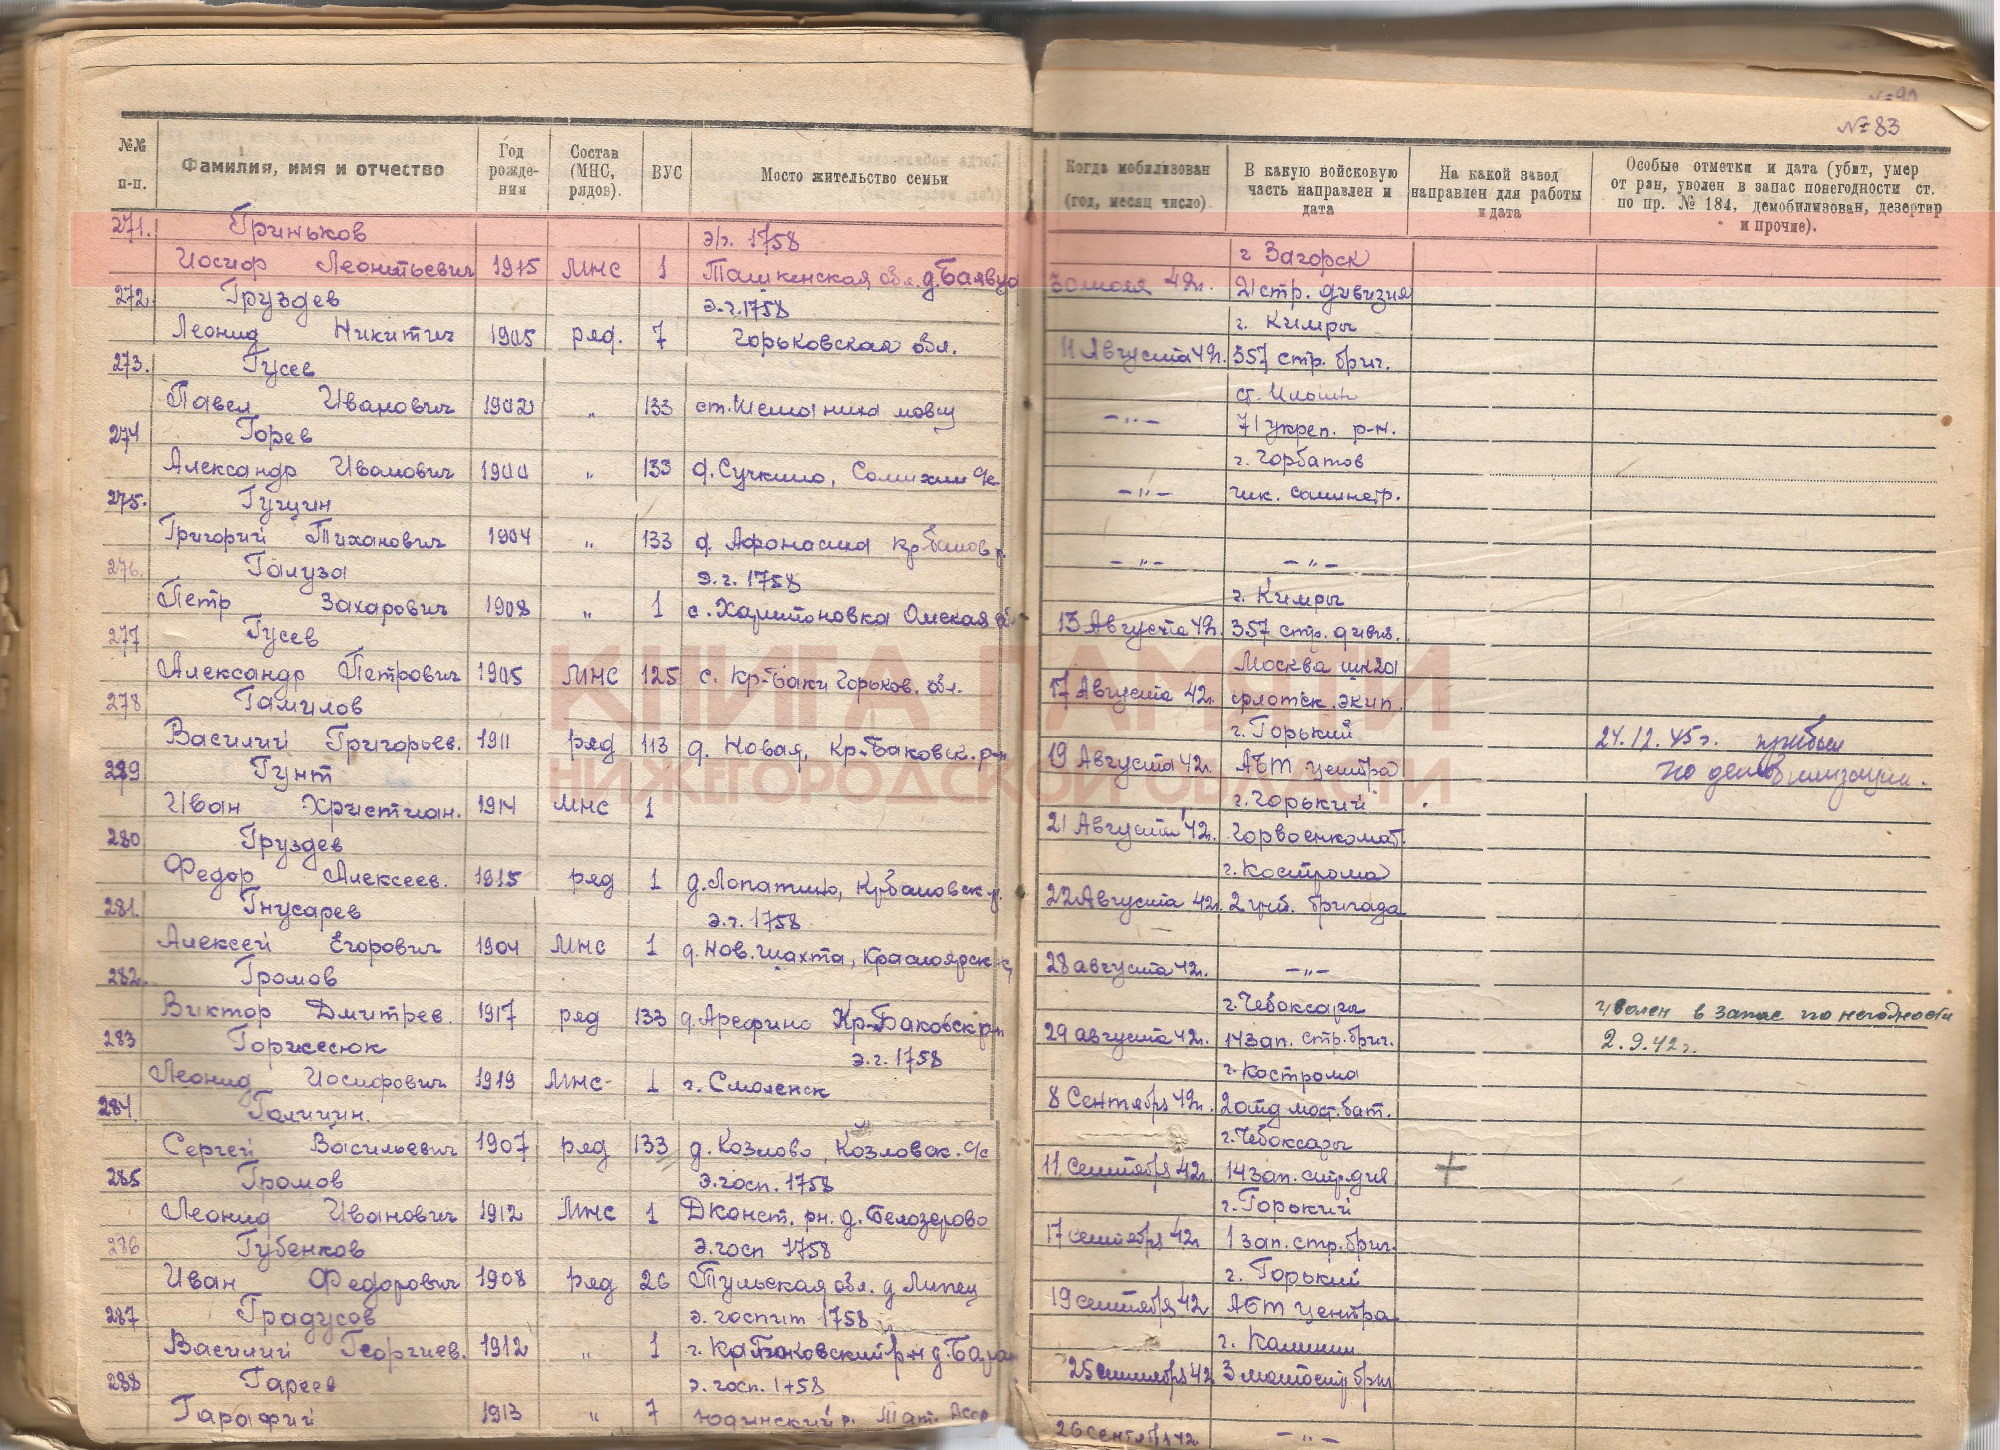 № 83
№№ п-п.
Фамилия, имя и отчество
Год рожде-ния
Состав (МНС, рядов).
ВУС
Место жительство семьи
Когда мобилизован (год, месяц число).
В какую войсковую часть направлен и дата
На какой завод направлен для работы и дата
Особые отметки и дата (убит, умер от ран, уволен в запас понегодности ст. по пр. № 184, демобилизован, дезертир и прочие).
271. Гриньков э/г. 1758 г Загорск
Иосиф Леонтьевич 1915 МНС 1 Ташкенская обл. д. 30 июля 42г. 21 стр. дивизия
272. Груздев э.г. 1758 г. Кимры
Леонид Никитич 1905 ряд. 7 Горьковская обл. 11 Августа 42г. 357 стр. бриг.
273. Гусев ст.
Павел Иванович 1902 „ 133 ст. Шеманиха -„- 71 укреп. р-н.
274 Горев г. Горбатов
Александр Иванович 1900 „ 133 д. Сучкино, -„-
275. Гущин
Григорий Тиханович 1904 „ 133 д. -„- -„-
276. Галуза э.г. 1758 г. Кимры
Петр Захарович 1908 „ 1 с. Харитоновка Омская 13 Августа 42г. 357 стр. дивиз.
277 Гусев Москва
Александр Петрович 1905 МНС 125 с. Кр-Баки Горьков. обл. 17 Августа 42г. флотск. экип.
278 Гамилов г. Горький 24.12.45г. прибыл
Василий Григорьев. 1911 ряд 113 д. Новая, Кр-Баковск. р-н 19 Августа 42г. АБТ центра по демобилизации.
279 Гунт г. Горький
Иван Христиан. 1914 МНС 1 21 Августа 42г. Горвоенкомат.
280 Груздев г. Кострома
Федор Алексеев. 1915 ряд 1 д. Лопатино, 22 Августа 42г. 2 бригада
281. Гнусарев э.г. 1758
Алексей Егорович 1904 МНС 1 д. Нов. шахта, 28 августа 42г. -„-
282. Громов г. Чебоксары уволен в запас по негодности
Виктор Дмитрев. 1917 ряд 133 д. Арефино Кр-Баковск р-н 29 августа 42г. 14 зап. стр. бриг. 2.9.42г.
283 э.г. 1758 г. Кострома
Леонид Иосифович 1919 МНС 1 г. Смоленск 8 Сентября 42г. 2 отд мот. бат.
284. Галичин. г. Чебоксары
Сергей Васильевич 1907 ряд 133 д. Козлово, Козловск. с/с 11 сентября 42г. 14 зап. стр. див +
285 Громов э. госп. 1758 г. Горький
Леонид Иванович 1912 МНС 1 Дконст. рн. д. Белозерово 17 сентября 42г 1 зап. стр. бриг.
286 Губенков э. госп 1758 г. Горький
Иван Федорович 1908 ряд 26 Тульская обл. д Липец 19 сентября 42 АБТ центра
287 Градусов э. госпит 1758 г. Калинин
Василий Георгиев. 1912 „ 1 25 сентября 42 3
288 Гареев э. госп. 1758
Гарафий 1913 „ 7 Юдинский р. Тат. Асср 26 сентября 42 -„-
КНИГА ПАМЯТИ
НИЖЕГОРОДСКОЙ ОБЛАСТИ